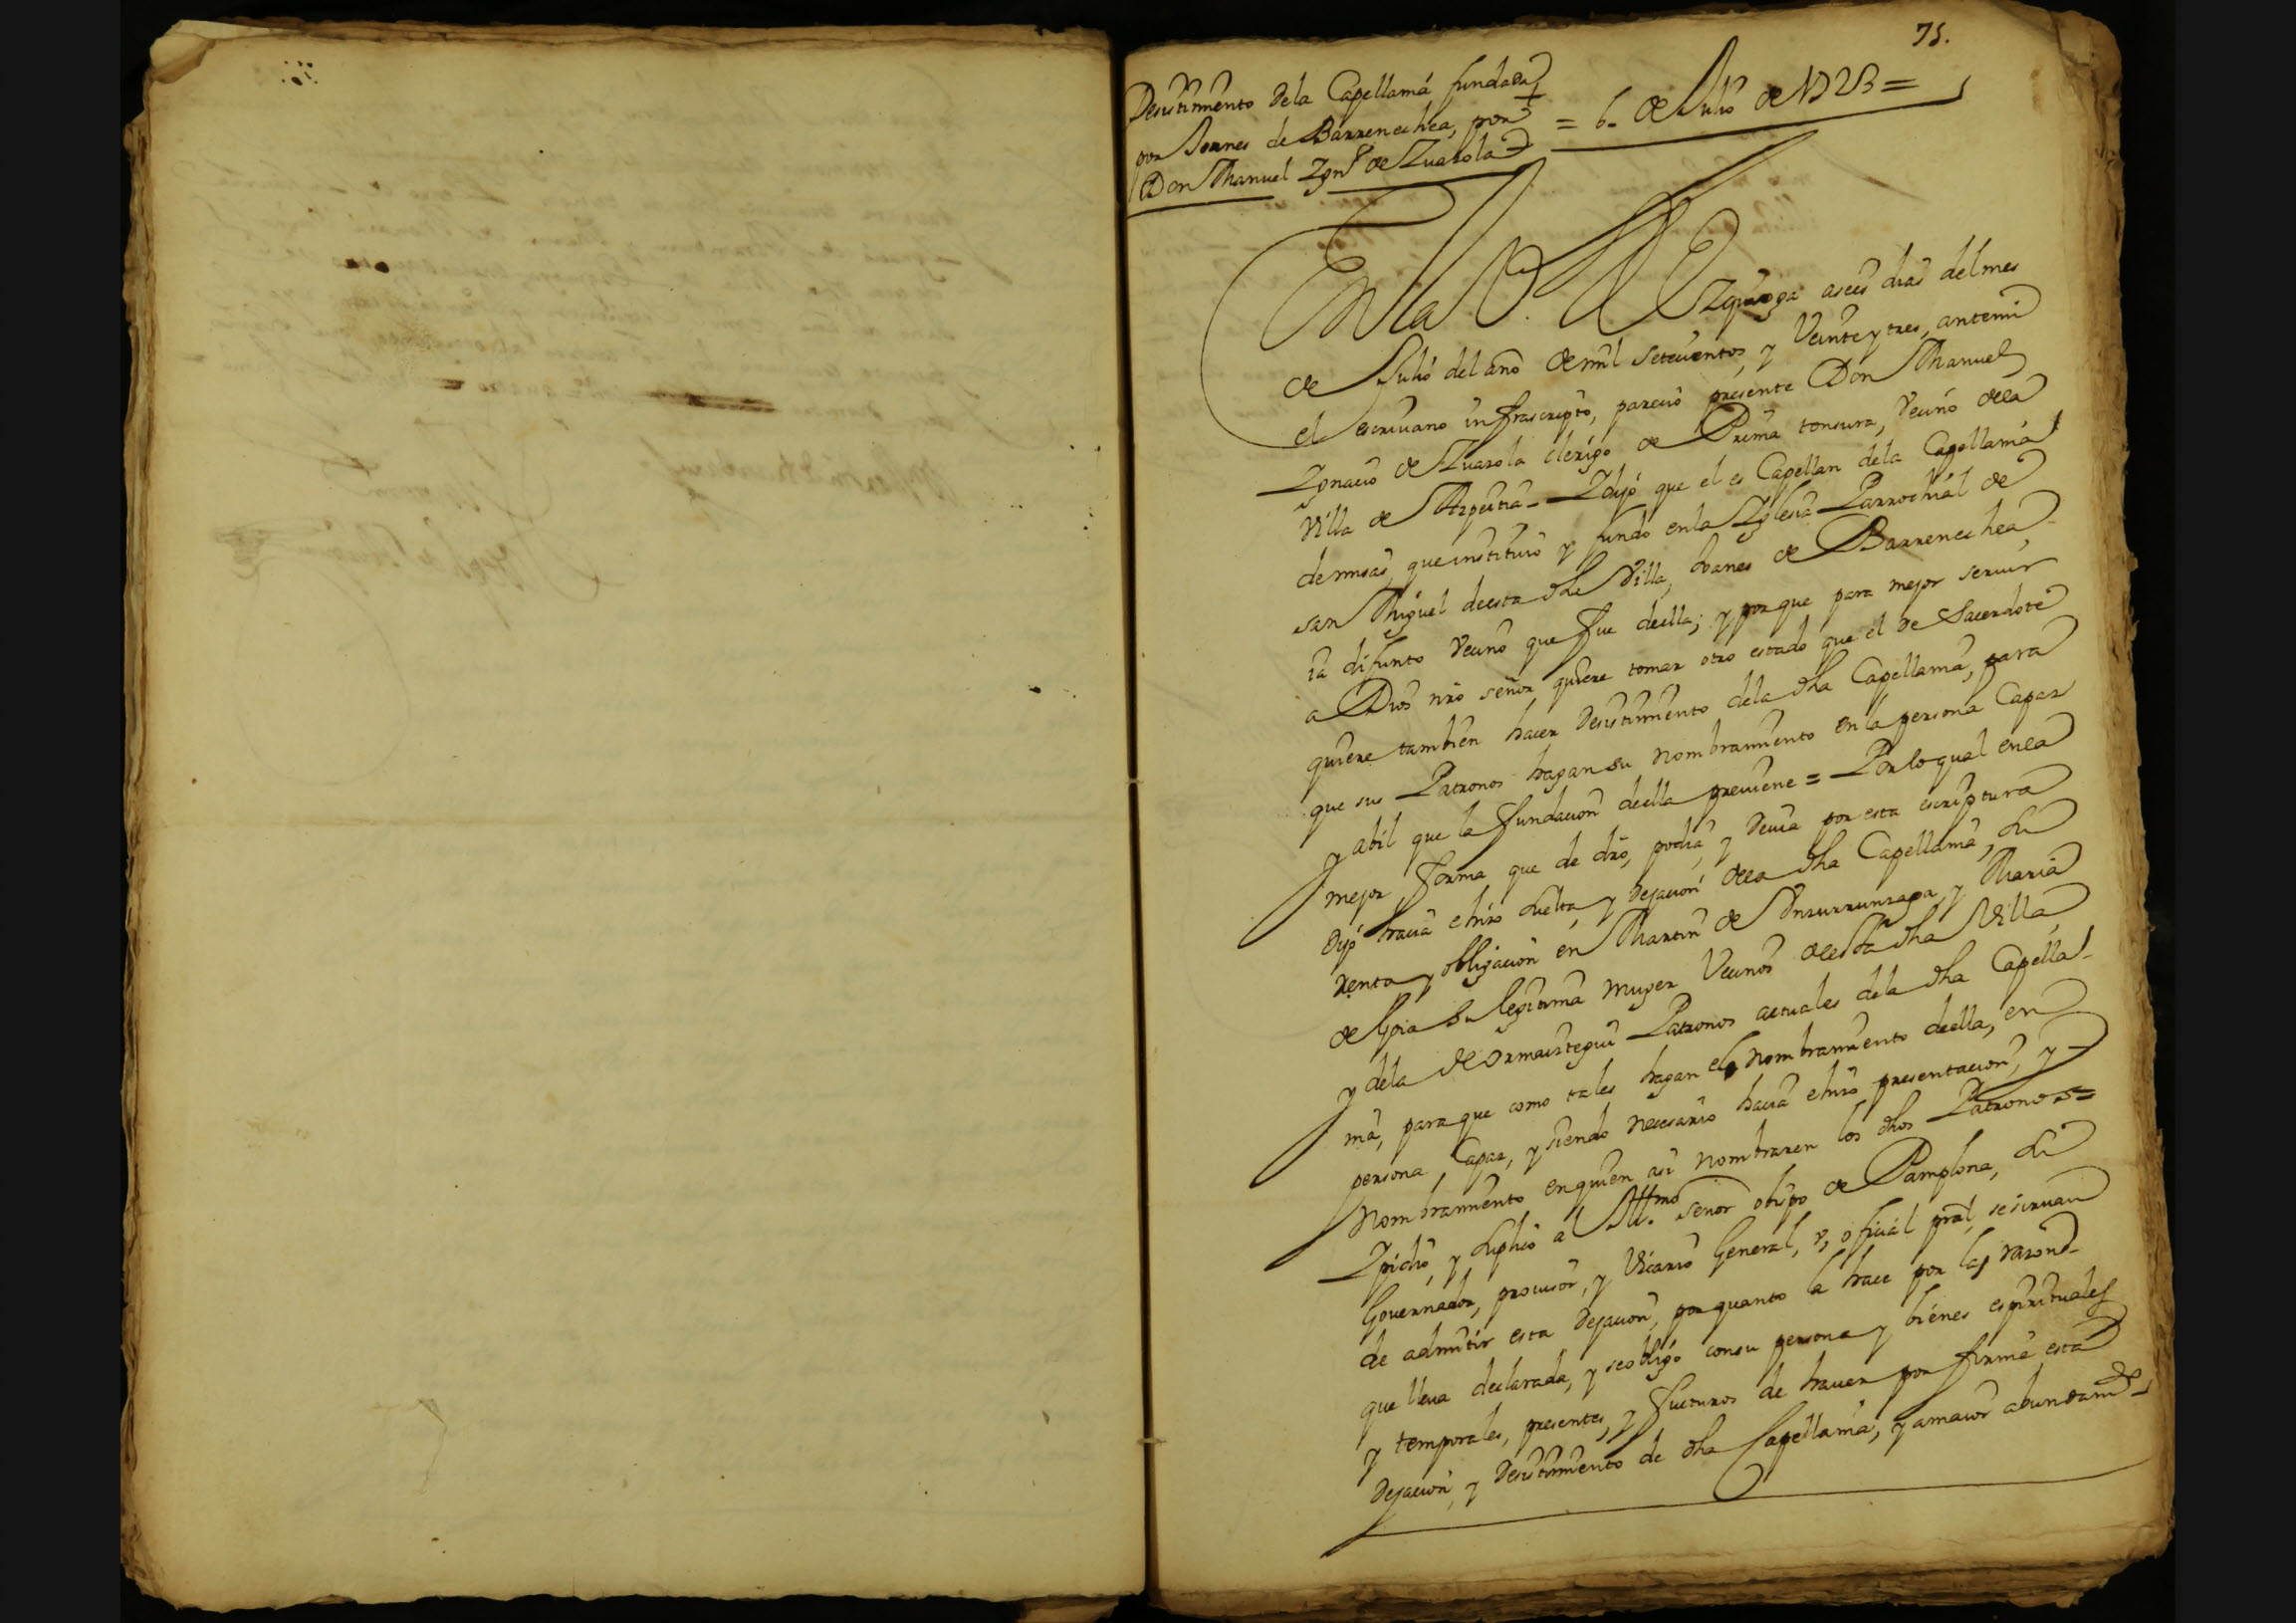 75.
Desistimento dela Capellania fundada
por Joanes de Barrenechea, por
Don Manuel Ygn.º de Zuazola
= 6. de Julio de 1723 =
En la V.ª de Ezquioga aseis dias del mes
de Julio del año de mil setecientos, y Veinte y tres, antemi
el escrivano infrascripto, parecio presente Don Manuel
Ygnacio de Zuazola clerigo de Prima tonsura, vecino dela
Villa de Azpeitia_ Y dijo que el es Capellan dela Capellania
de misas, que instituio y fundo enla Yglesia Parrochial de
san Miguel deesta dha Villa, Joanes de Barrenechea,
ia difunto vecino que fue deella; y porque para mejor servir
a Dios nro señor quiere tomar otro estado que el de Sacerdote
quiere tambien hacer desistimiento dela dha Capellania, para
que sus Patronos hagan su nombramiento en la persona Capaz
y abil que la fundacion deella previene = Por lo qual enla
mejor forma que de dro, podia, y devia por esta escriptura
dijo hacia e hizo suelta, y dejacion dela dha Capellania, su
renta y obligacion en Martin de Insurrunzaga, y Maria
de Goia su legitima muger Vecinos deesta dha Villa,
y dela de Ormaiztegui Patronos actuales dela dha Capella-
nia, para que como tales hagan el nombramiento deella, en
persona Capaz, y siendo necesario hacia e hizo presentacion, y
nombramiento en quien asi nombraren los dhos Patronos=
Y pidio, y suplico al Ill.mo señor obispo de Pamplona, su
Governador, provisor, y Vicario General, v, oficial pral, se sirvan
de admitir esta dejacion, por quanto la hace por la razon
que lleva declarada, y se obligo con su persona y bienes espirituales
y temporales, presentes, y futuros de haver por firme esta
dejacion, y desistimiento de dha Capellania, y amaior abundam.to